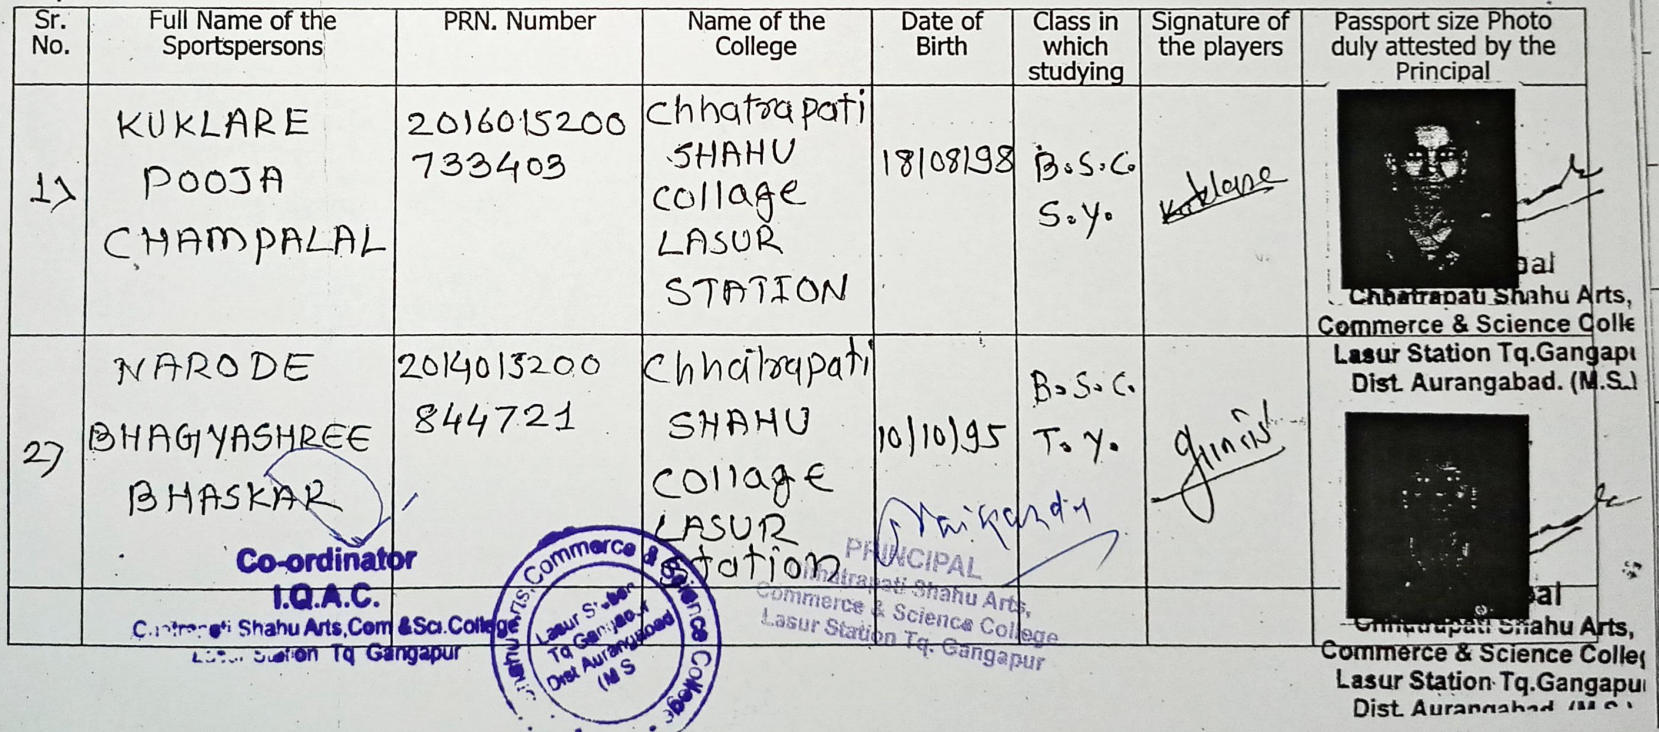 Sr. No.
Full Name of the Sportspersons
PRN. Number
Name of the College
Date of Birth
Class in which studying
Signature of the players
Passport size Photo duly attested by the Principal
1)
KUKLARE
POOJA
CHAMPALAL
2016015200
733403
Chhatrapati
SHAHU
collage
LASUR
STATION
18/08/98
B.S.C.
S.Y.
Kuklare
pal
Chhatrapati Shahu Arts,
Commerce & Science Colle
Lasur Station Tq.Gangapu
Dist. Aurangabad. (M.S.)
2)
NARODE
BHAGYASHREE
BHASKAR
2014015200
844721
Chhatrapati
SHAHU
collage
LASUR
station
10/10/95
B.S.C.
T.Y.
pal
Chhatrapati Shahu Arts,
Commerce & Science Colleg
Lasur Station Tq.Gangapu
Dist. Aurangabad (M.S.)
Co-ordinator
I.Q.A.C.
Chhatrapati Shahu Arts,Com &Sci.College
Lasur Station Tq Gangapur
Shahu Arts, Commerce & Science College
Lasur Station
Tq Gangapur
Dist Aurangabad
(M S
PRINCIPAL
Chhatrapati Shahu Arts,
Commerce & Science College
Lasur Station Tq. Gangapur